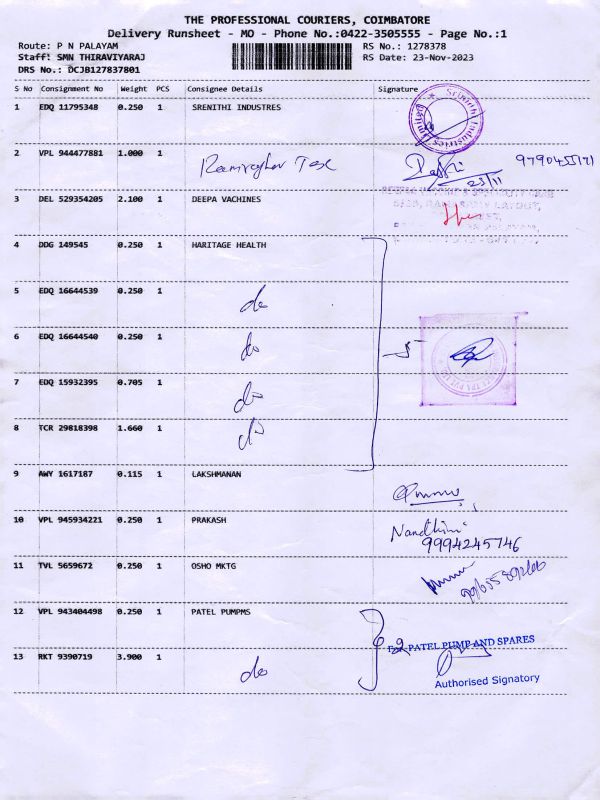 THE PROFESSIONAL COURIERS, COIMBATORE
Delivery Runsheet - MO - Phone No.:0422-3505555 - Page No.:1
Route: P N PALAYAM RS No.: 1278378
Staff: SMN THIRAVIYARAJ RS Date: 23-Nov-2023
DRS No.: DCJB127837801
S No Consignment No Weight PCS Consignee Details Signature
1 EDQ 11795348 0.250 1 SRENITHI INDUSTRES
Srinithi Industries Limited
2 VPL 944477881 1.000 1
23/11
3 DEL 529354205 2.100 1 DEEPA VACHINES
4 DDG 149545 0.250 1 HARITAGE HEALTH
5 EDQ 16644539 0.250 1 do
6 EDQ 16644540 0.250 1 do
5
7 EDQ 15932395 0.705 1 do
8 TCR 29818398 1.660 1 do
9 AWY 1617187 0.115 1 LAKSHMANAN
10 VPL 945934221 0.250 1 PRAKASH Nandhini
9994245746
11 TVL 5659672 0.250 1 OSHO MKTG
12 VPL 943404498 0.250 1 PATEL PUMPMS
PATEL PUMP AND SPARES
13 RKT 9390719 3.900 1 do
Authorised Signatory